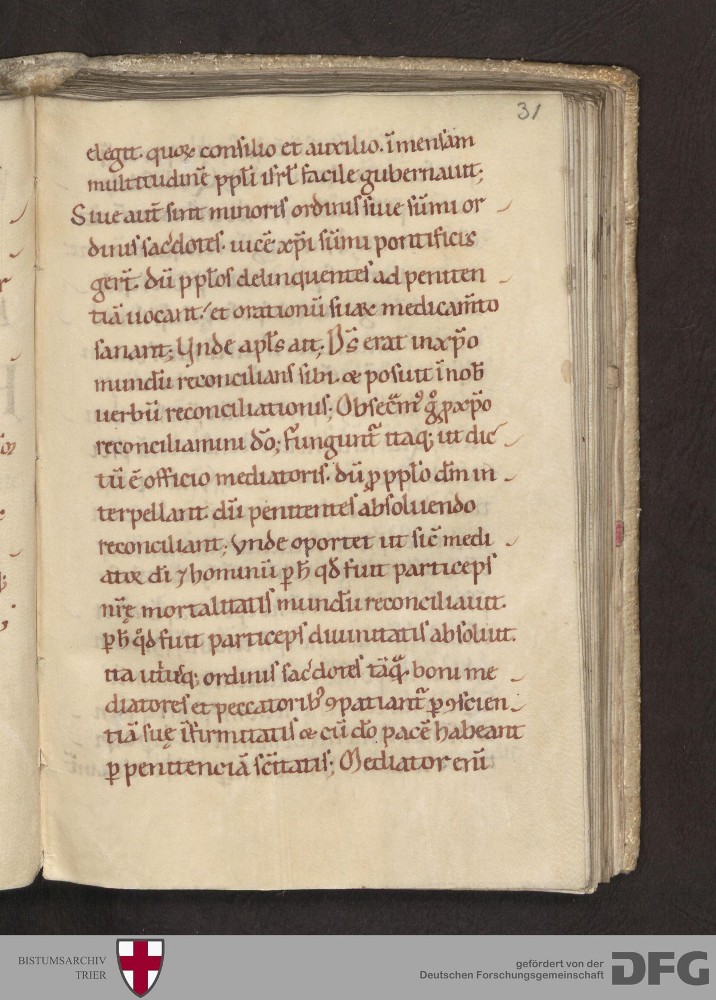 31
elegit. quoꝝ consilio et auxilio. īmensam
multitudinē ppl̄i isrl̄ facile gubernauit;
Siue aut̄ sint minoris ordinis siue sūmi or
dinis sac̄dotes. uicē xp̄i sūmi pontificis
gert̄. dū ppl̄os delinquentes ad peniten
tiā uocant. et orationū suaꝝ medicam̄to
sanant; Vnde apl̄s ait; Ds̄ erat in xp̄o
mundū reconcilians sibi. & posuit ī nob̄
uerbū reconciliationis; Obsec̄mꝰ g̊ ꝓ xp̄o
reconciliamini dō; Fungunt̄ itaq; ut dic
tū ē officio mediatoris. dū ꝓ ppl̄o dm̄ in
terpellant. dū penitentes absoluendo
reconciliant; Vnde oportet ut sic̄ medi
ator di̅ ⁊ hominū ꝑ h̄ qd̄ fuit particeps
nr̄ę mortalitatis mundū reconciliauit.
ꝑ h̄ qd̄ fuit particeps diuinitatis absoluit.
ita utriq; ordinis sac̄dotes tāq̄. boni me
diatores et peccatoribꝰ ꝯpatiant̄ ꝑ ꝯscien
tiā suę īfirmitatis & cū dō pacē habeant
ꝑ penitenciā sc̄itatis; Mediator enī
BISTUMSARCHIV
TRIER
gefördert von der
Deutschen Forschungsgemeinschaft
DFG